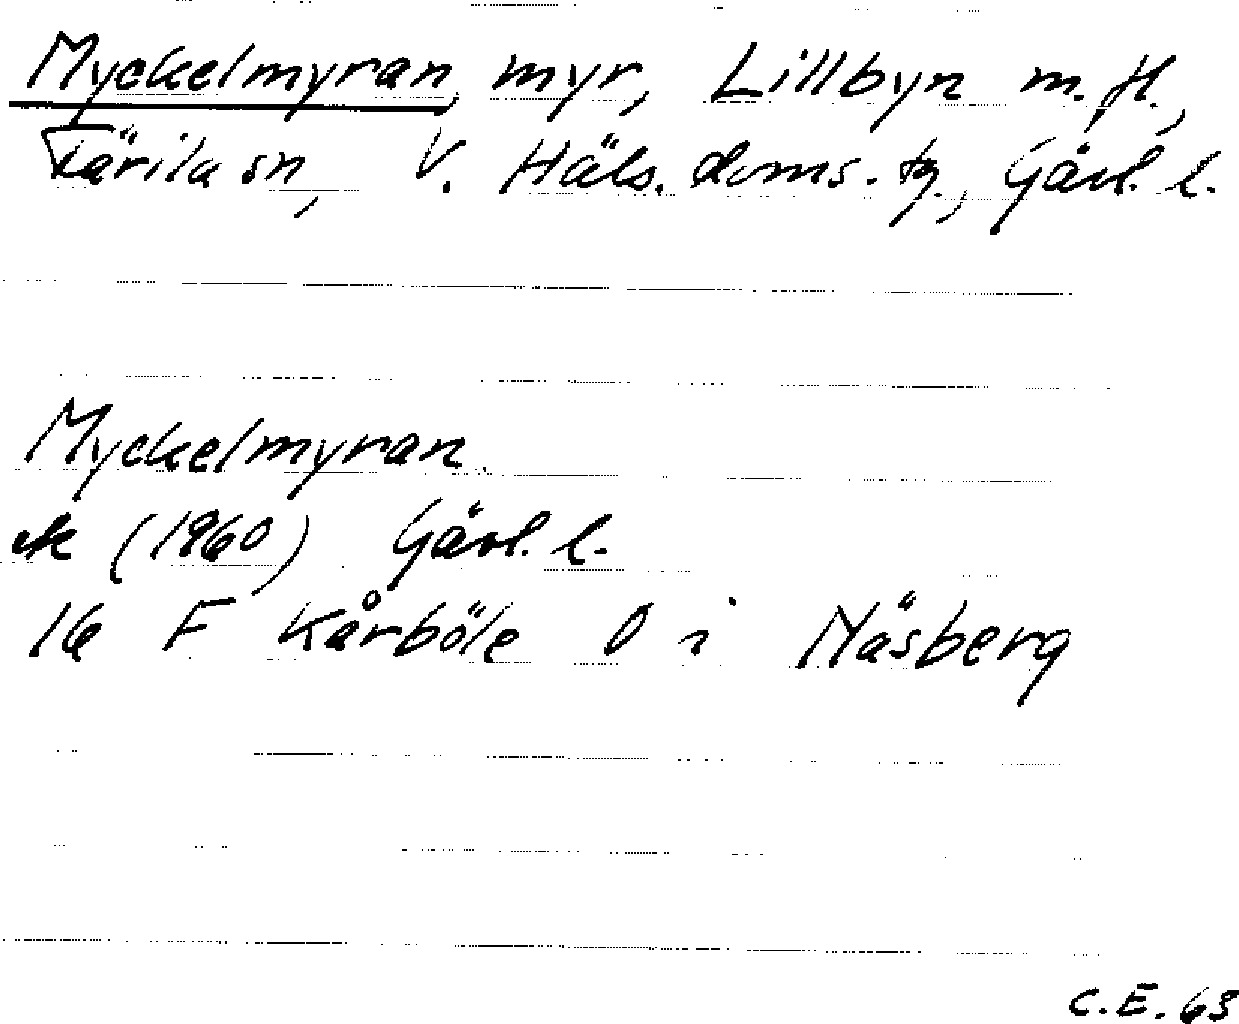 Myckelmyran, myr, Lillbyn m.fl.,
Färila sn, V. Häls. doms.tg., Gävl. l.
Myckelmyran
ek (1960) Gävl. l.
16 F Kårböle O i Nåsberg
C.E. 63